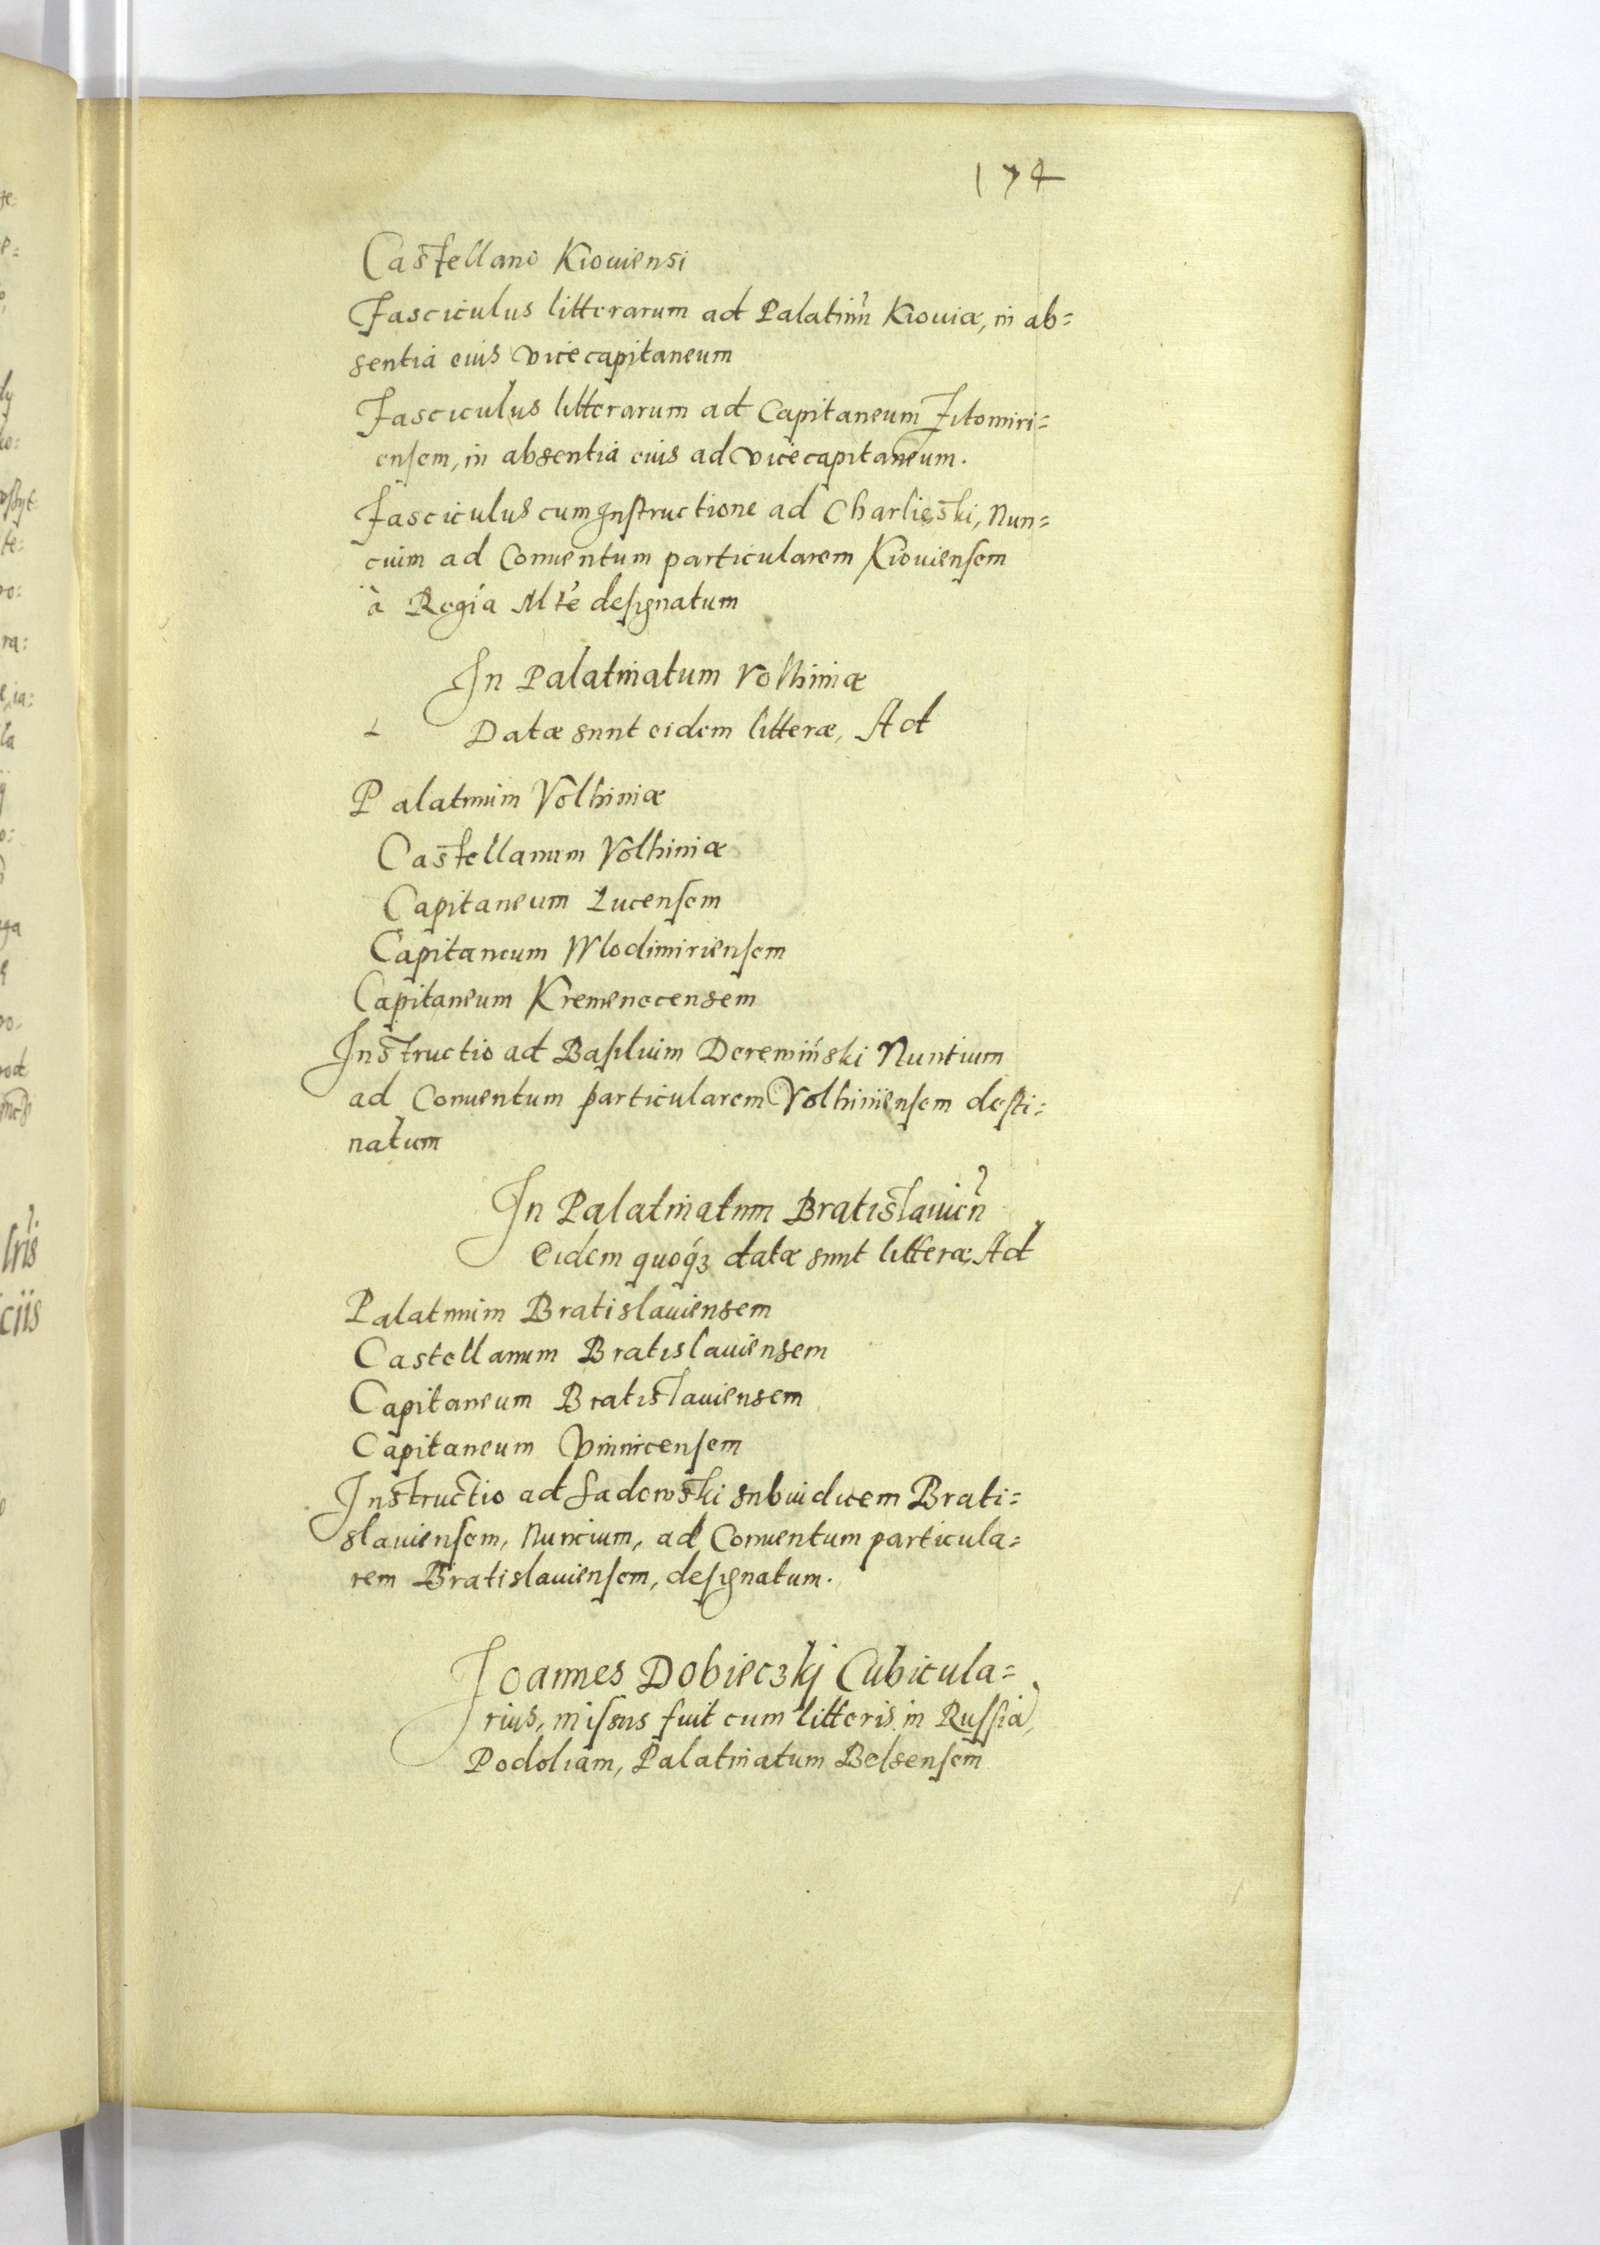 174
Castellano Kiouiensi
Fasciculus litterarum ad Palatinũ Kiouiæ, in ab=
sentia eius vicecapitaneum
Fasciculus litterarum ad Capitaneum Zitomiri=
ensem, in absentia eius ad vicecapitaneum.
Fasciculus cum Instructione ad Charlieski, Nun=
cium ad Conuentum particularem Kiouiensem
à Regia Mte designatum
In Palatinatum Volhiniæ
Datæ sunt eidem litteræ, Ad
Palatinum Volhiniæ
Castellanum Volhiniæ
Capitaneum Lucensem
Capitaneum Wlodimiriensem
Capitaneum Kremenecensem
Instructio ad Basilium Dereminski Nuntium
ad Conuentum particularem Volhiniensem desti=
natum
In Palatinatum Bratislauieñ
Eidem quoq3 datæ sunt litteræ, Ad
Palatinum Bratislauiensem
Castellanum Bratislauiensem
Capitaneum Bratislauiensem
Capitaneum Vinnicensem
Instructio ad Sadowski subiudicem Brati=
slauiensem, Nuncium, ad Conuentum particula=
rem Bratislauiensem, designatum.
Joannes Dobieczkj Cubicula=
rius, missus fuit cum litteris in Russiã,
Podoliam, Palatinatum Belsensem